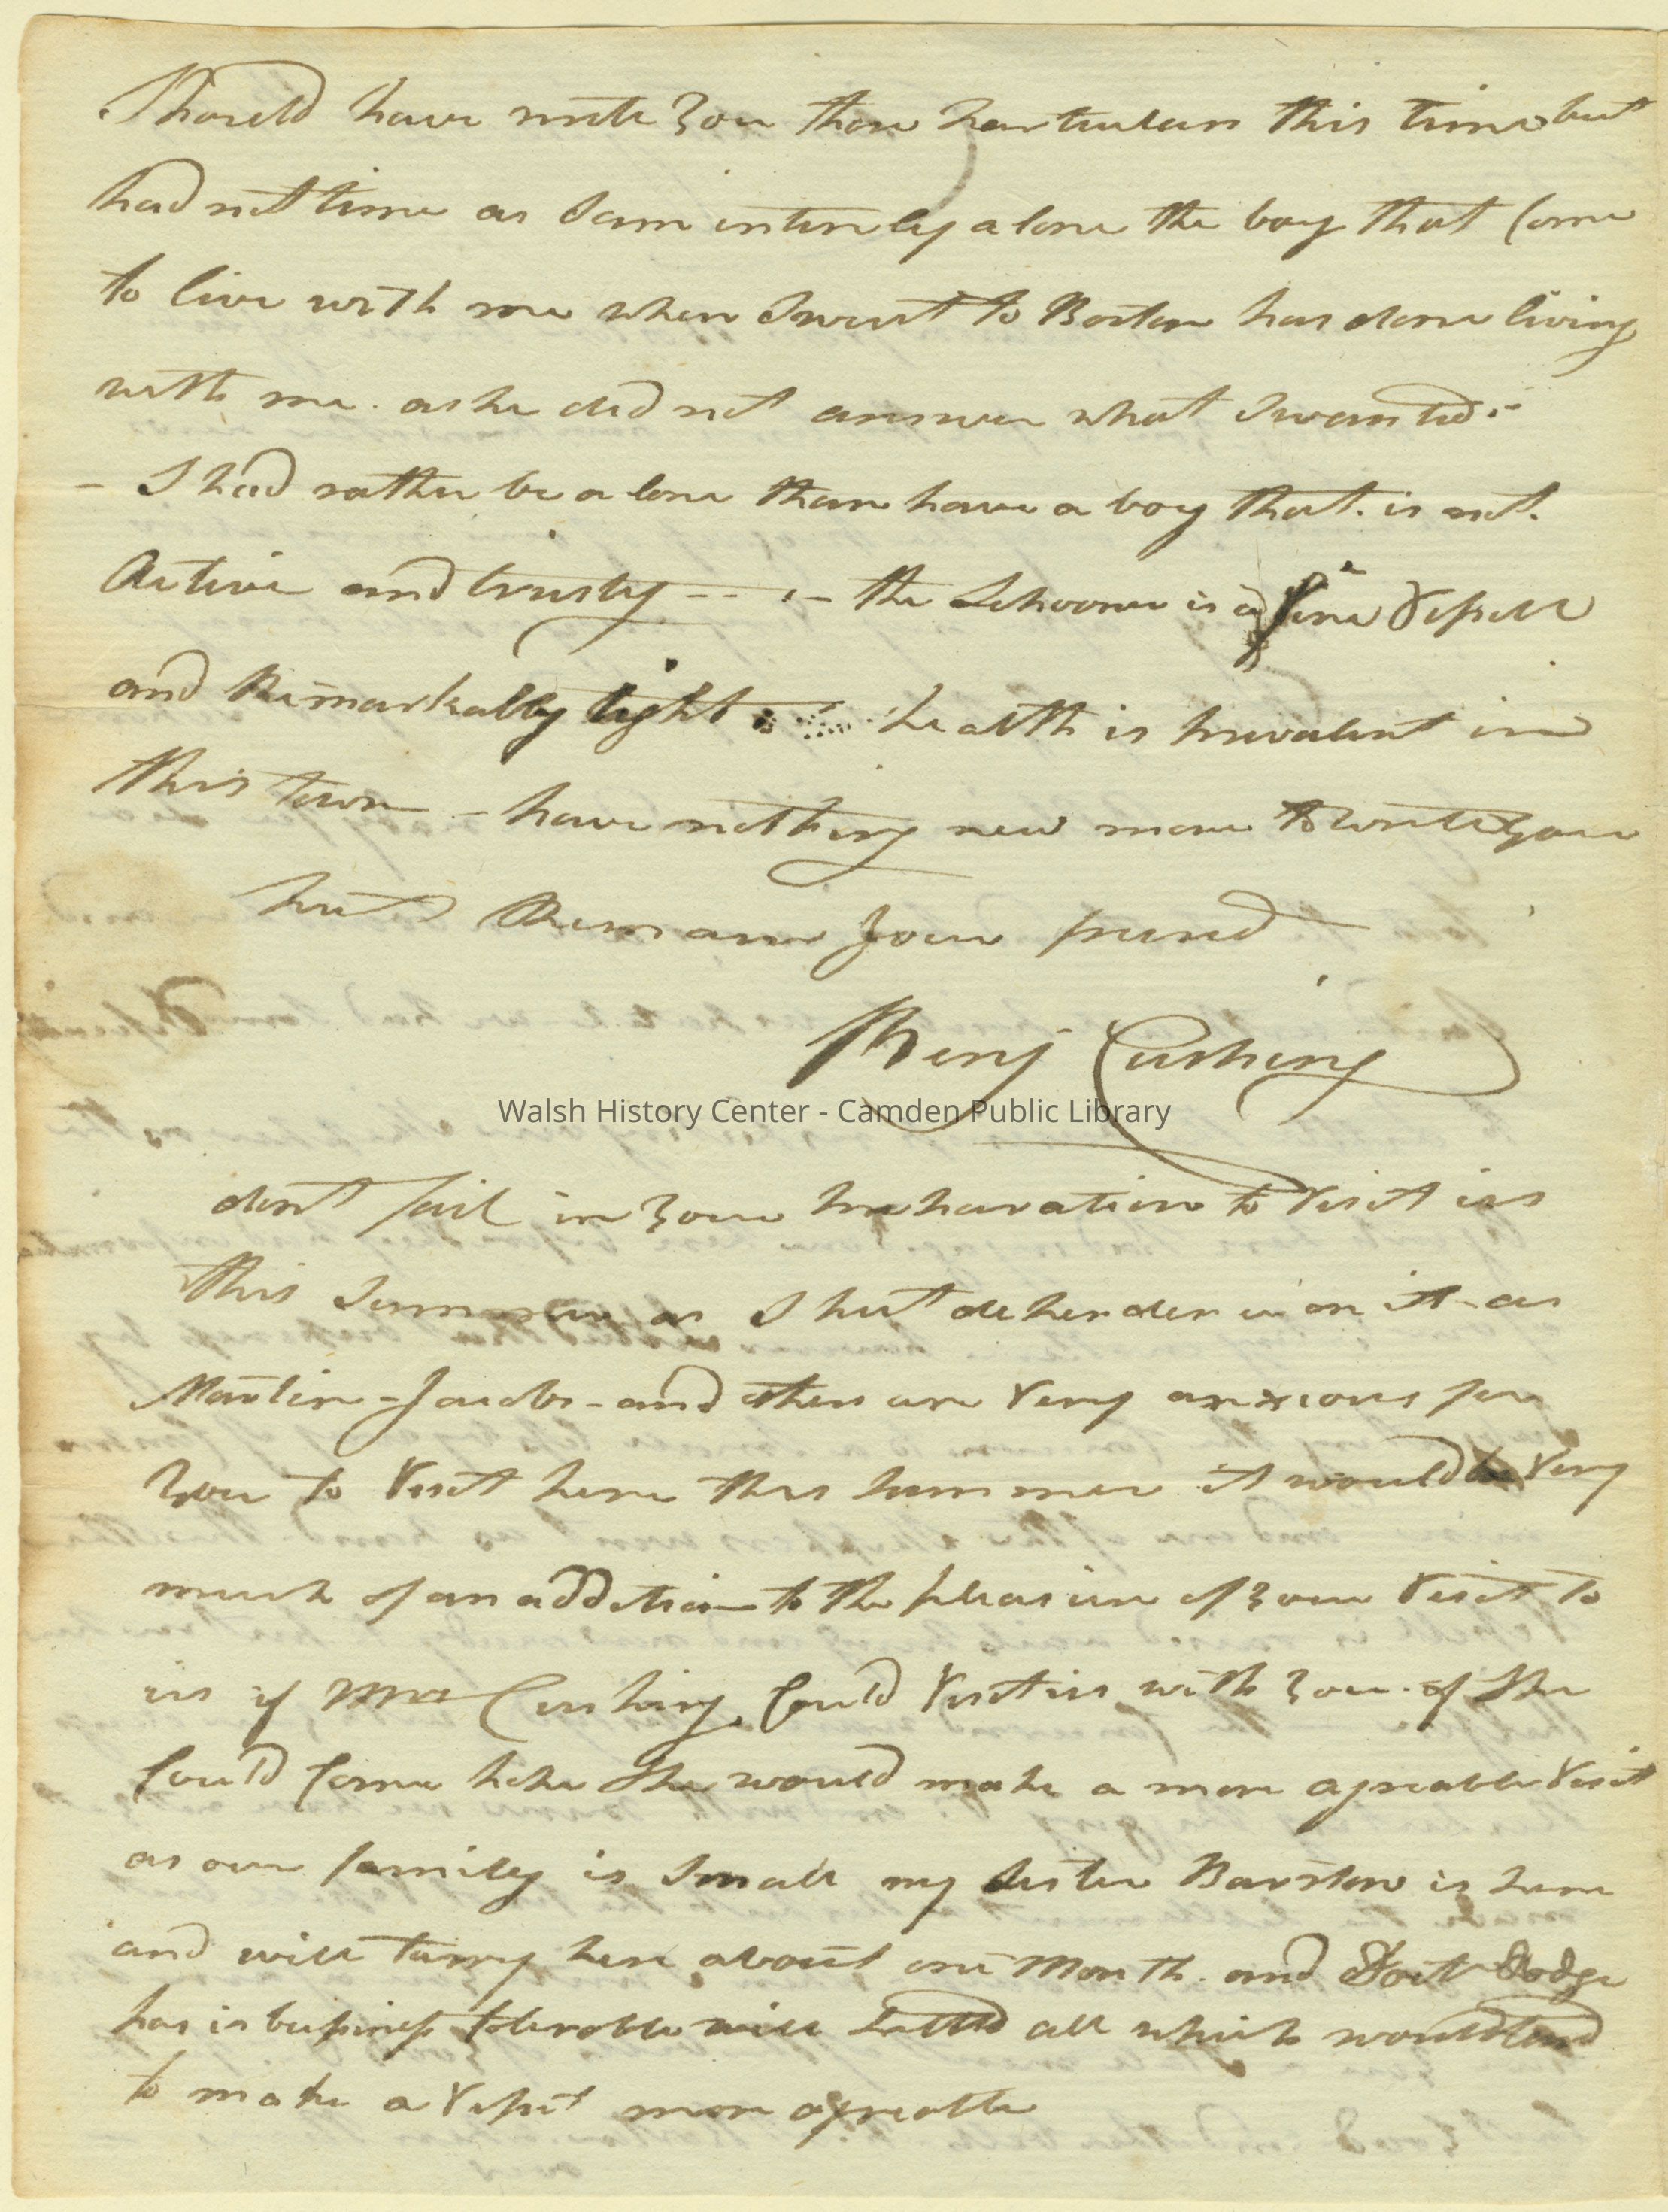 Should have wrote you those particulars this time but
had not time as I am intirely alone the boy that Come
to live with me when I went to Boston has done living
with me. as he did not answer what I wanted
- I had rather be alone than have a boy that is not
Active and trusty --- the Schooner is a fine Vessell
and Remarkably tight health is prevalent in
this town - have nothing new more to write you
but Remain your friend
Benj Cushing
Walsh History Center - Camden Public Library
dont fail in your preparation to Visit us
this Summer as I put dependence on it as
Martin - Jacobs - and others are Very anxious for
you to Visit here this summer it would be Very
much of an addition to the pleasure of your Visit to
us if Mrs Cushing Could Visit us with you. if She
Could Come hope She would make a more agreable Visit
as our family is Small my Sister Barstow is here
and will tarry here about one Month. and Doct Dodge
has is business tolerable well Settled all which would tend
to make a Vesset more agreable